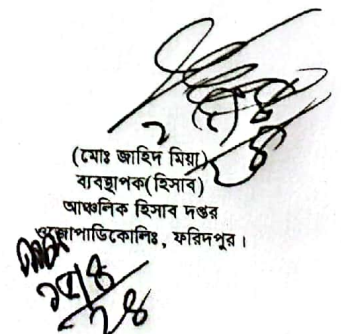 (মোঃ জাহিদ মিয়া)
ব্যবস্থাপক(হিসাব)
আঞ্চলিক হিসাব দপ্তর
ওজোপাডিকোলিঃ, ফরিদপুর।